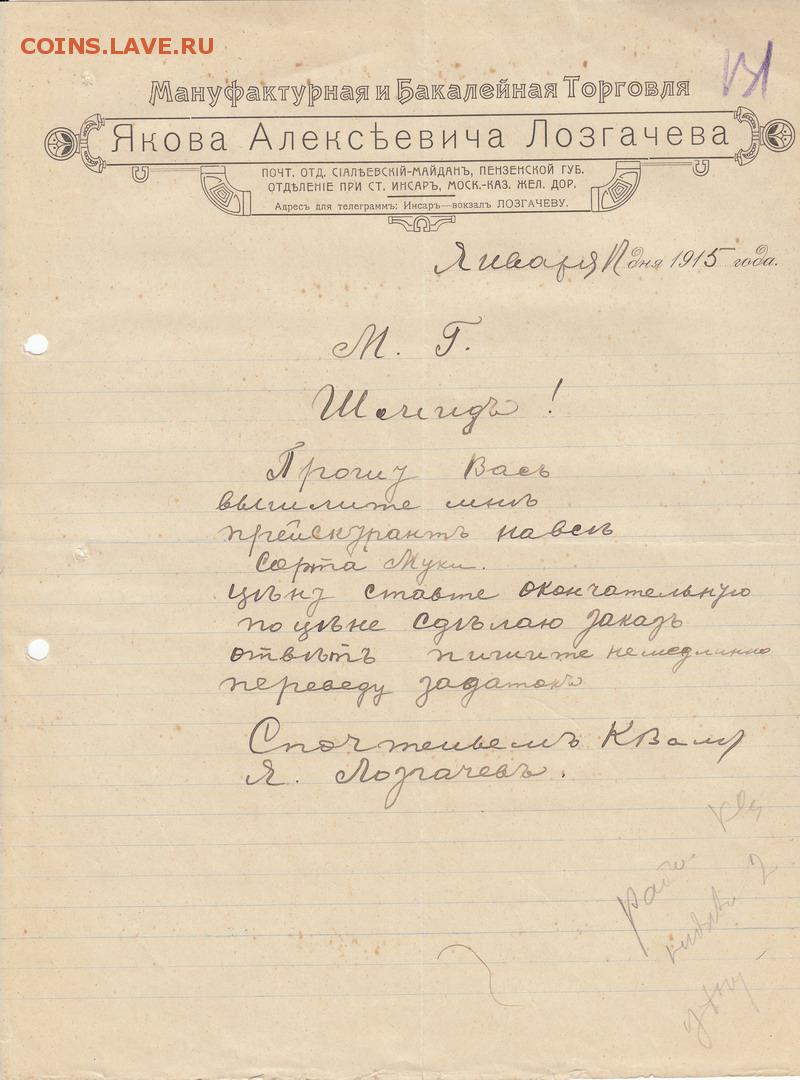 COINS.LAVE.RU
Мануфактурная и Бакалейная Торговля
Якова Алексѣевича Лозгачева
ПОЧТ. ОТД. СІАЛѢЕВСКІЙ-МАЙДАНЪ, ПЕНЗЕНСКОЙ ГУБ.
ОТДѢЛЕНІЕ ПРИ СТ. ИНСАРЪ, МОСК.-КАЗ. ЖЕЛ. ДОР.
Адресъ для телеграммъ: Инсаръ—вокзалъ ЛОЗГАЧЕВУ.
Января дня 1915 года.
М. Г.
Шмидъ !
Прошу Васъ
вышлите мнѣ
прейскурантъ на всѣ
сорта Муки.
цѣну ставте окончательную
по цѣне сдѣлаю заказъ
отвѣтъ пишите немедлинно
переведу задатокъ
С почтеньемъ К Вамъ
Я. Лозгачевъ.